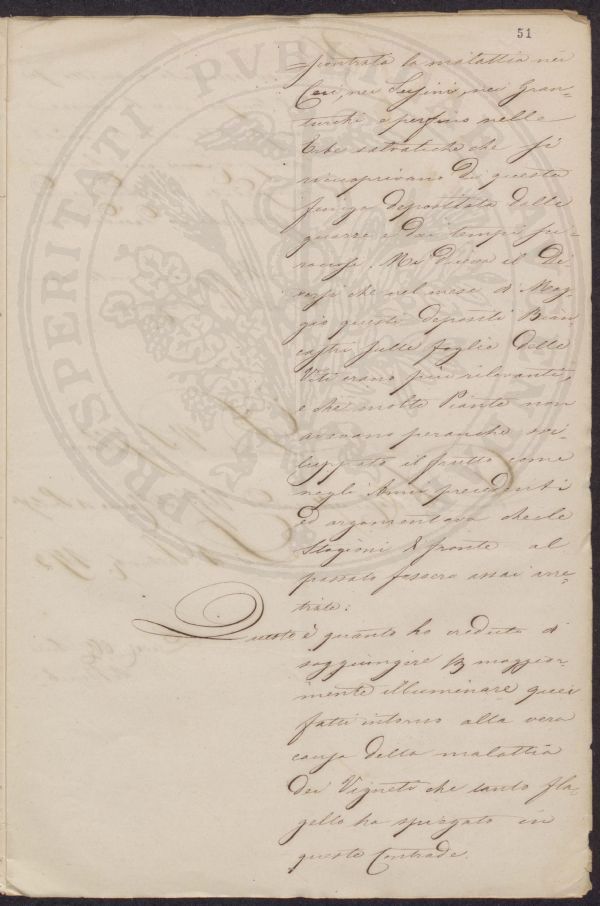 51
scontrata la malattia nei
Ceci, nei Lupini, nei Gran-
turchi e perfino nelle
Erbe selvatiche che si
ricoprivano di questo
fungo depositato dalle
guazze e dai tempi pio-
vosi. Mi diceva il De
rossi che nel mese di Mag-
gio questi depositi Bian-
castri sulle foglie delle
Viti erano più rilevanti,
e che molte Piante non
avevano peranche svi-
luppato il frutto come
negli Anni precedenti
ed argomentava che le
Stagioni di fronte al
passato fossero assai arre-
trate:
Questo è quanto ho creduto di
soggiungere p maggior-
mente illuminare quei
fatti intorno alla vera
causa della malattia
dei Vigneti che tanto fla-
gello ha spiegato in
queste Contrade.
PROSPERITATI PVBLICAE